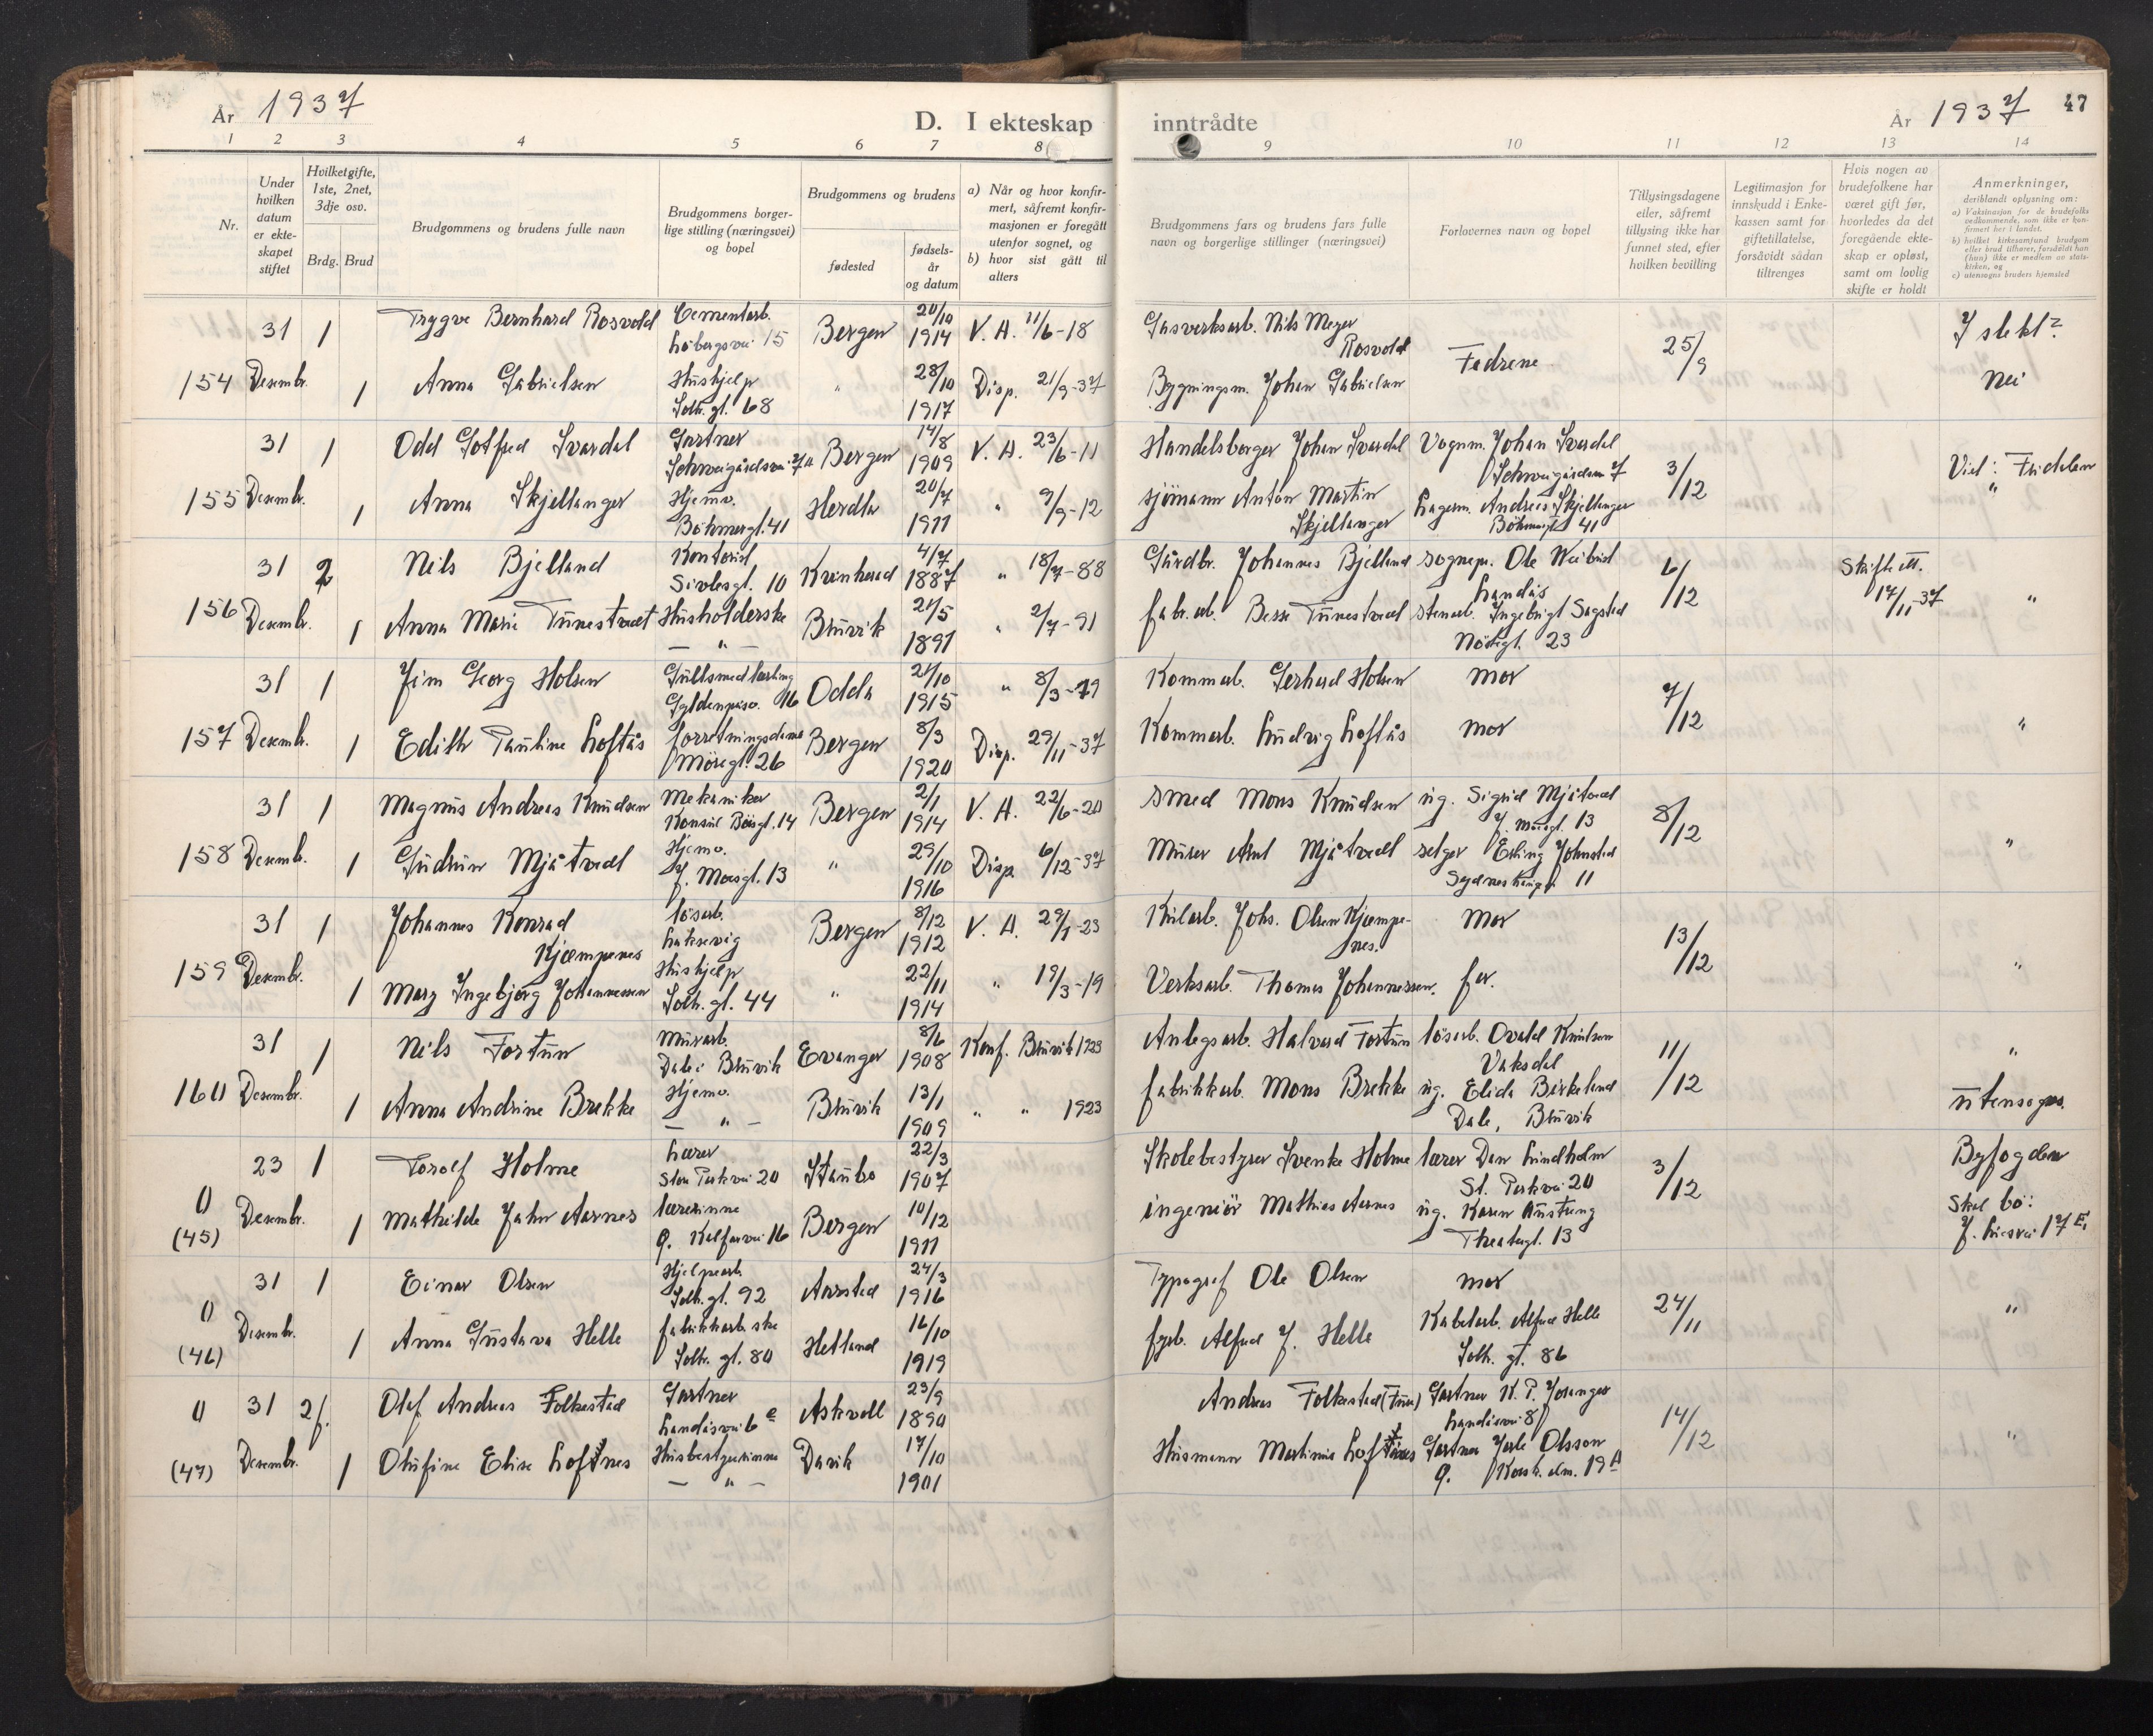 År 1937
D. I ekteskap
inntrådte
År 1937 47
1 2 3 4 5 6 7 8
9 10 11 12 13 14
Nr.
Under hvilken datum er ekteskapet stiftet
Hvilketgifte, 1ste, 2net, 3dje osv.
Brdg. Brud
Brudgommens og brudens fulle navn
Brudgommens borgerlige stilling (næringsvei) og bopel
Brudgommens og brudens
fødested
fødselsår og datum
a) Når og hvor konfirmert, såfremt konfirmasjonen er foregått utenfor sognet, og
b) hvor sist gått til alters
Brudgommens fars og brudens fars fulle navn og borgerlige stillinger (næringsvei)
Forlovernes navn og bopel
Tillysingsdagene eller, såfremt tillysing ikke har funnet sted, efter hvilken bevilling
Legitimasjon for innskudd i Enkekassen samt for giftetillatelse, forsåvidt sådan tiltrenges
Hvis nogen av brudefolkene har været gift før, hvorledes da det foregående ekteskap er opløst, samt om lovlig skifte er holdt
Anmerkninger, deriblandt oplysning om:
a) Vaksinasjon for de brudefolks vedkommende, som ikke er konfirmert her i landet.
b) hvilket kirkesamfund brudgom eller brud tilhører, forsåvidt han (hun) ikke er medlem av statskirken, og
c) utensogns bruders hjemsted
31 1 Trygve Bernhard Rosvold Cementarb. 15 Bergen 20/10 1914 V. A. 11/6-18 Gasverksarb. Nils Meyer Rosvold Fedrene 25/9 I slekt?
154 Desembr. 1 Anna Gabrielsen Hushjelp Solh. gt. 68 " 28/10 1917 Disp. 21/9-37 Bygningsm. Johan Gabrielsen Nei
31 1 Odd Gotfred Svardal Gartner Bergen 14/8 1909 V. A. 23/6-11 Handelsborger Johan Svardal Vognm. Johan Svardal 3/12
155 Desembr. 1 Anna Skjellanger Hjemv. Böhmergt. 41 Herdla 20/7 1911 " 9/9-12 sjömann Anton Martin Skjellanger Lagerm. Andreas Skjellanger Böhmergt 41 "
31 2 Nils Bjelland Kontorist Sivlesgt. 10 Kvinherad 4/7 1887 " 18/7-88 Gårdbr. Johannes Bjelland sognepr. Ole Landås 6/12 Skifte att. 17/11-37
156 Desembr. 1 Anna Marie Tunestvedt Husholderske — " — Bruvik 21/5 1891 " 2/7-91 fabr.arb. Tunestveit stenarb. Ingebrigt Sagstad Nöstegt. 23 "
31 1 Jim Georg Holsen Gullsmedlærling 16 Odda 21/10 1915 " 8/3-19 Kommarb. Gerhard Holsen mor 7/12
157 Desembr. 1 Edith Pauline Loftås forretningsdame Möregt. 26 Bergen 8/3 1920 Disp. 29/11-37 Kommarb. Ludvig Loftås mor "
31 1 Magnus Andreas Knudsen Mekaniker Konsul Börsgt. 14 Bergen 2/1 1914 V. A. 22/6-20 smed Mons Knudsen ug. Sigrid Mjåtvedt J. Moesgt. 13 8/12
158 Desembr. 1 Gudrun Mjåtvedt Hjemv. J. Moesgt. 13 " 29/10 1916 Disp 6/12-37 Murer Arnt Mjåtvedt selger Erling 11 "
31 1 Johannes Konrad Kjæmpenes lösarb. Laksevig Bergen 8/12 1912 V. A. 29/1-23 Kularb. Johs. Olsen Kjæmpenes. Mor 13/12
159 Desembr. 1 Mary Ingebjørg Johannessen Hushjelp Solh. gt. 44 " 22/11 1914 " 19/3-19 Verksarb. Thomas Johannessen. far. "
31 1 Nils Fortun murarb. Dale i Bruvik Evanger 8/6 1908 Konf. Bruvik 1923 Anlegsarb. Halvard Fortun lösarb. Knutsen Vaksdal 11/12 "
160 Desembr. 1 Anna Andrine Brekke Hjemv. — " — Bruvik 13/1 1909 " " 1923 fabrikkarb. Mons Brekke ug. Elida Birkeland Dale, Bruvik utensogns.
23 1 Torolf Holme Lærer Store Parkvei 20 Staubo 22/3 1907 Skolebestyrer Svenke Holme lærer Dan Lindholm St. Parkvei 20 3/12 Byfogden
0 (45) Desembr. 1 Mathilde Jahn Aarnes lærerinne q. Kalfarvei 16 Bergen 10/12 1911 ingeniör Mathias Aarnes ug. Karen Theatergt. 13 Skal bo:
31 1 Einar Olsen Hjelpearb. Solh. gt. 92 Aarstad 24/3 1916 Typograf Ole Olsen mor 24/11 "
0 (46) Desembr. 1 Anna Gustava Helle fabrikkarb.ske Solh. gt. 80 Hetland 16/10 1919 fyrb. Alfred J. Helle Kabelarb. Alfred Helle Solh. gt. 86
0 31 2f. Olaf Andreas Folkestad Gartner Landåsvei 6 e Askvoll 23/9 1890 Andreas Folkestad Gartner K. P. Joranger Landåsvei 8 14/12 "
(47) Desembr. 1 Olufine Elise Loftnes Husbestyrerinne — " — Davik 17/10 1901 Husmann Martinus Loftnes Gartner Jarle Olsson q. Korsk. alm. 19 A